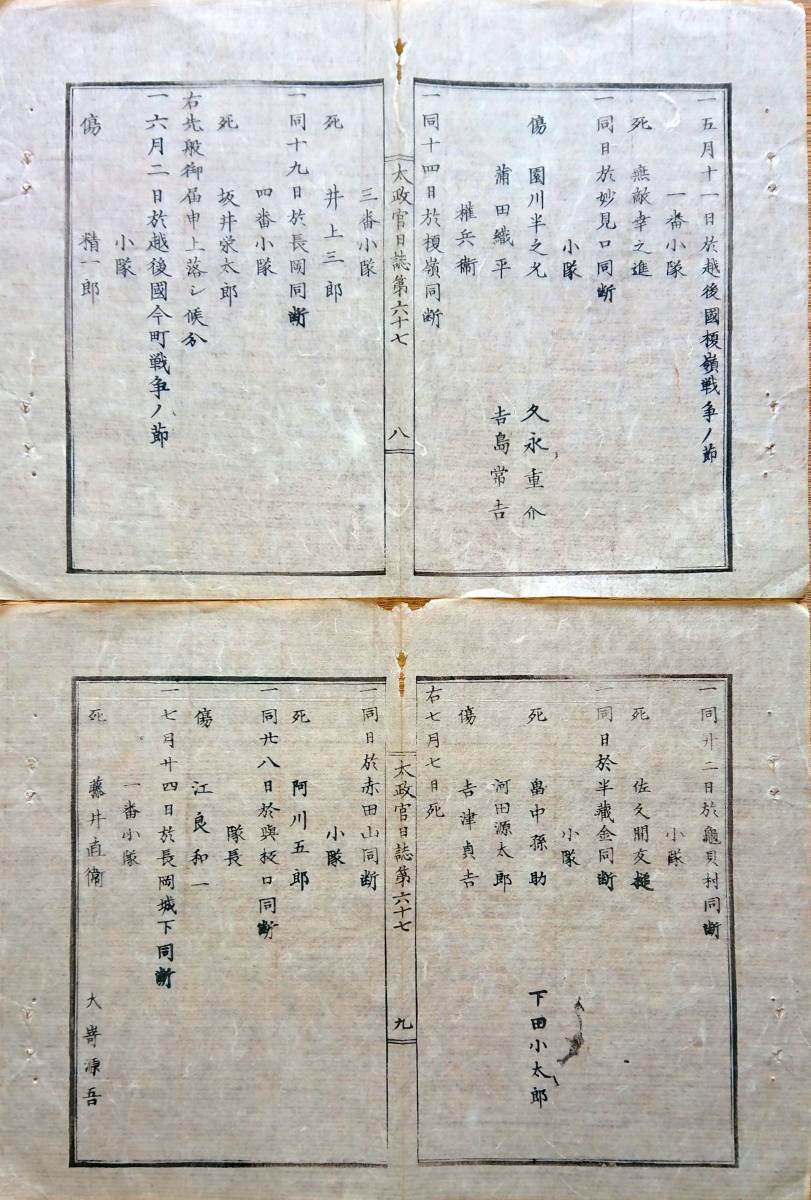 一五月十一日於越後國榎嶺戦争ノ節
一番小隊
死 無敵幸之進
一同日於妙見口同断
小隊
傷 園川半之允 久永重介
蒲田織平 吉島常吉
権兵衛
一同十四日於榎嶺同断
太政官日誌第六十七 八
三番小隊
死 井上三郎
一同十九日於長岡同断
四番小隊
死 坂井栄太郎
右先般御届申上落シ候分
一六月二日於越後國今町戦争ノ節
小隊
傷 精一郎
一同廿二日於亀貝村同断
小隊
死 佐久間友槌
一同日於半蔵金同断
小隊
死 畠中孫助 下田小太郎
河田源太郎
傷 吉津貞吉
右七月七日死
太政官日誌第六十七 九
一同日於赤田山同断
小隊
死 阿川五郎
一同廿八日於與板口同断
隊長
傷 江良和一
一七月廿四日於長岡城下同断
一番小隊
死 藤井直衛 大嵜源吾